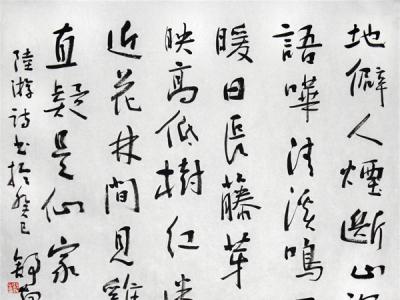 地僻人煙斷山深
語嘩清溪鳴
暖日長藤芽
映高低樹紅迷
近花林間見雞
直疑是仙家
陸游詩书於癸巳